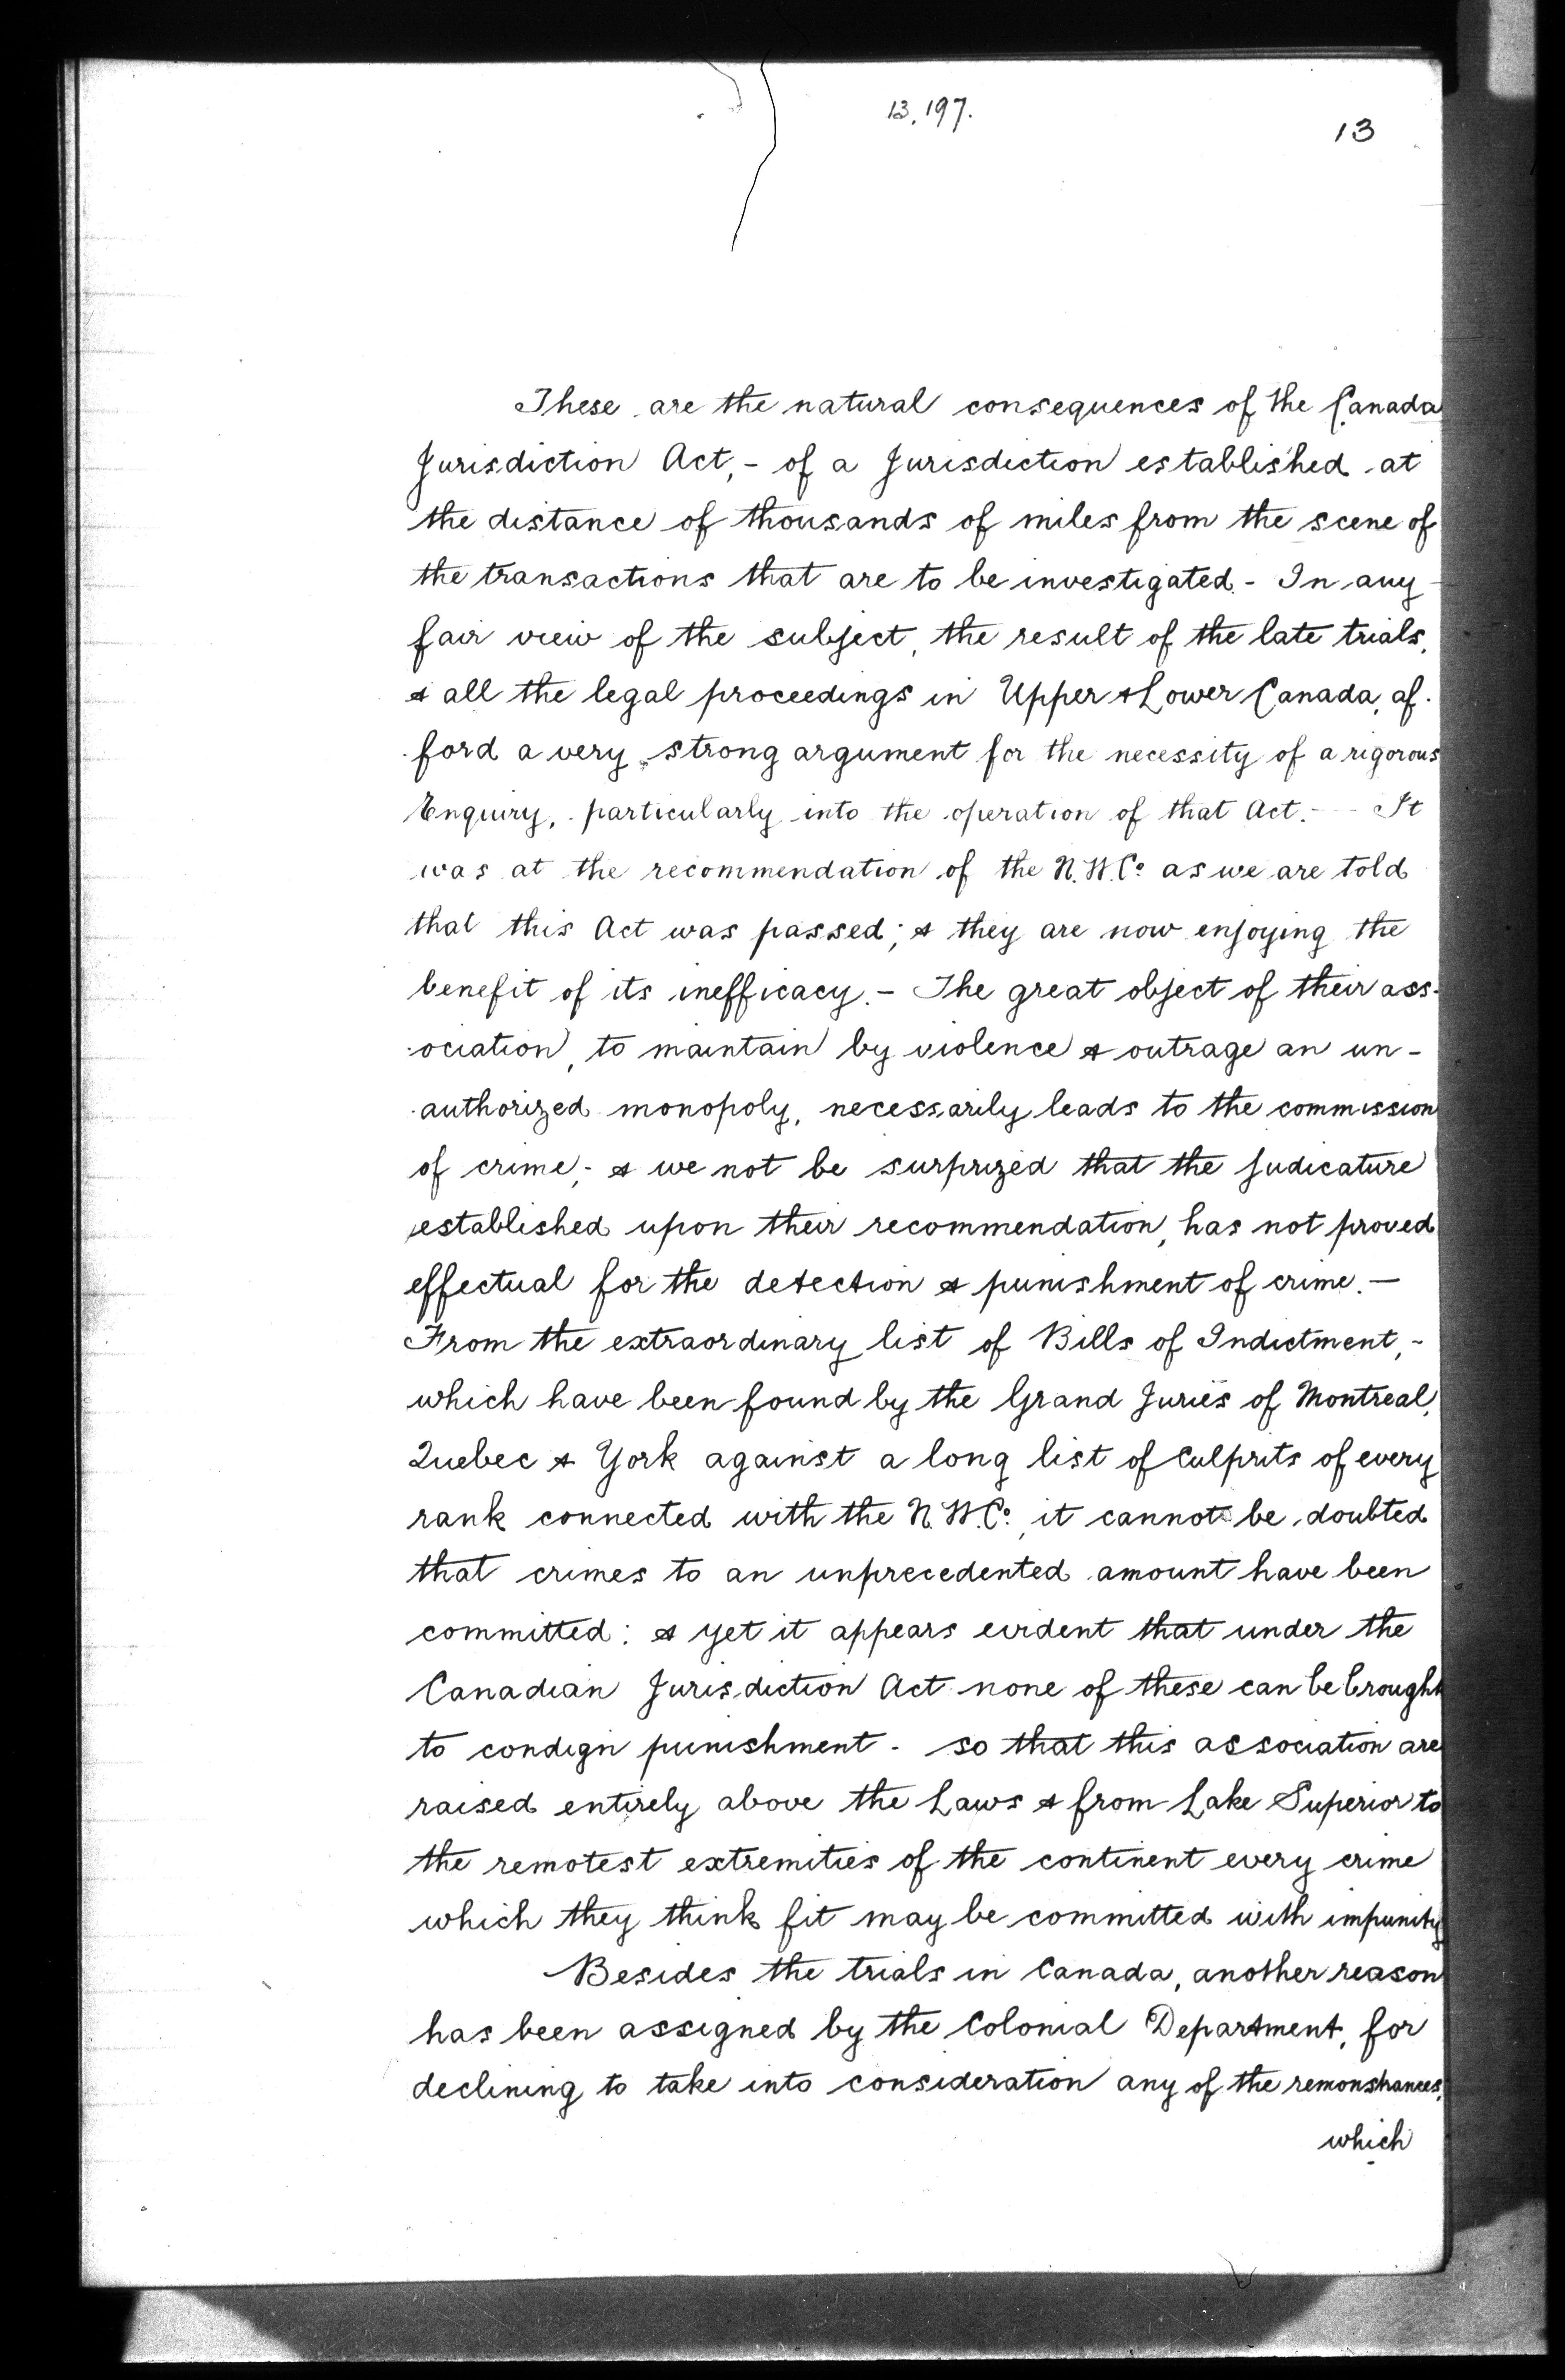 13,197.
13
These are the natural consequences of the Canada
Jurisdiction Act, - of a Jurisdiction established at
the distance of thousands of miles from the scene of
the transactions that are to be investigated. - In any
fair view of the subject, the result of the late trials,
& all the legal proceedings in Upper & Lower Canada, af-
-ford a very strong argument for the necessity of a rigorous
Enquiry, particularly into the operation of that Act. - - It
was at the recommendation of the N.W.Co as we are told
that this Act was passed; & they are now enjoying the
benefit of its inefficacy. - The great object of their ass-
-ociation, to maintain by violence & outrage an un-
-authorized monopoly, necessarily leads to the commission
of crime; - & we not be surprized that the judicature
established upon their recommendation, has not proved
effectual for the detection & punishment of crime. -
From the extraordinary list of Bills of Indictment, -
which have been found by the Grand Juries of Montreal,
Quebec & York against a long list of Culprits of every
rank connected with the N.W.Co, it cannot be doubted
that crimes to an unprecedented amount have been
committed: & yet it appears evident that under the
Canadian Jurisdiction Act none of these can be brought
to condign punishment - so that this association are
raised entirely above the Laws & from Lake Superior to
the remotest extremities of the continent every crime
which they think fit may be committed with impunity
Besides the trials in Canada, another reason
has been assigned by the Colonial Department, for
declining to take into consideration any of the remonstrances,
which